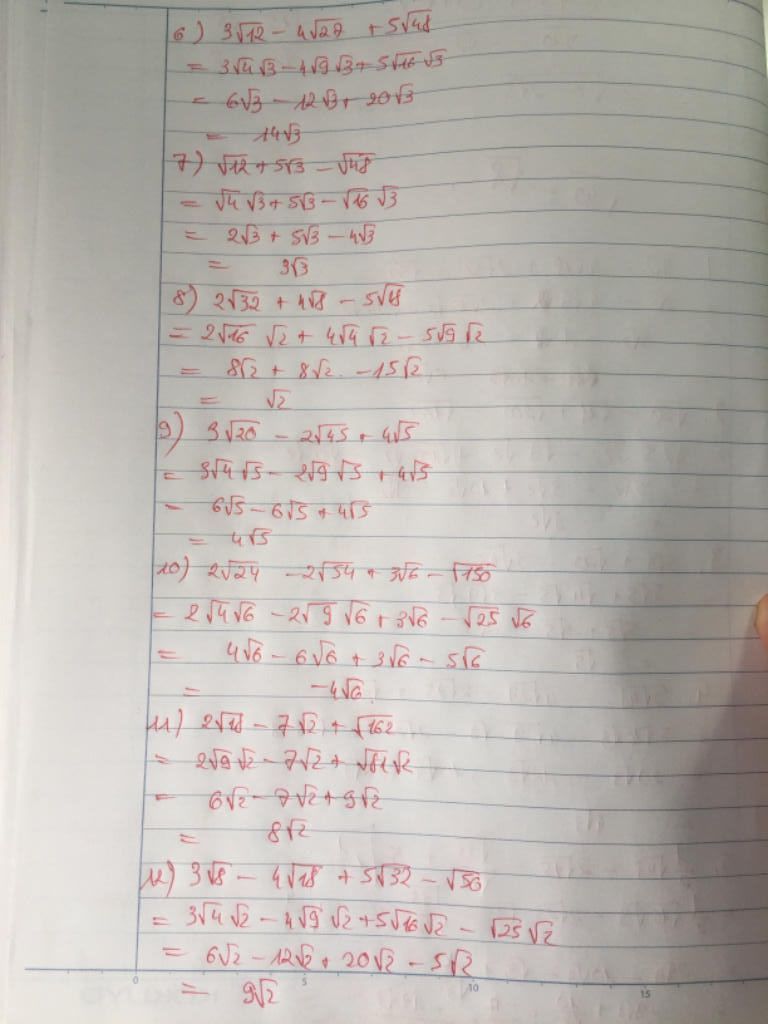 6) 3√12 - 4√27 + 5√48
= 3√4√3 - 4√9√3 + 5√16√3
= 6√3 - 12√3 + 20√3
= 14√3
7) √12 + 5√3 - √48
= √4√3 + 5√3 - √16√3
= 2√3 + 5√3 - 4√3
= 3√3
8) 2√32 + 4√8 - 5√18
= 2√16 √2 + 4√4√2 - 5√9√2
= 8√2 + 8√2 - 15√2
= √2
9) 3√20 - 2√45 + 4√5
= 3√4√5 - 2√9√5 + 4√5
= 6√5 - 6√5 + 4√5
= 4√5
10) 2√24 - 2√54 + 3√6 - √150
= 2√4√6 - 2√9√6 + 3√6 - √25√6
= 4√6 - 6√6 + 3√6 - 5√6
= -4√6
11) 2√18 - 7√2 + √162
= 2√9√2 - 7√2 + √81√2
= 6√2 - 7√2 + 9√2
= 8√2
12) 3√8 - 4√18 + 5√32 - √50
= 3√4√2 - 4√9√2 + 5√16√2 - √25√2
= 6√2 - 12√2 + 20√2 - 5√2
= 9√2
0 5 10 15